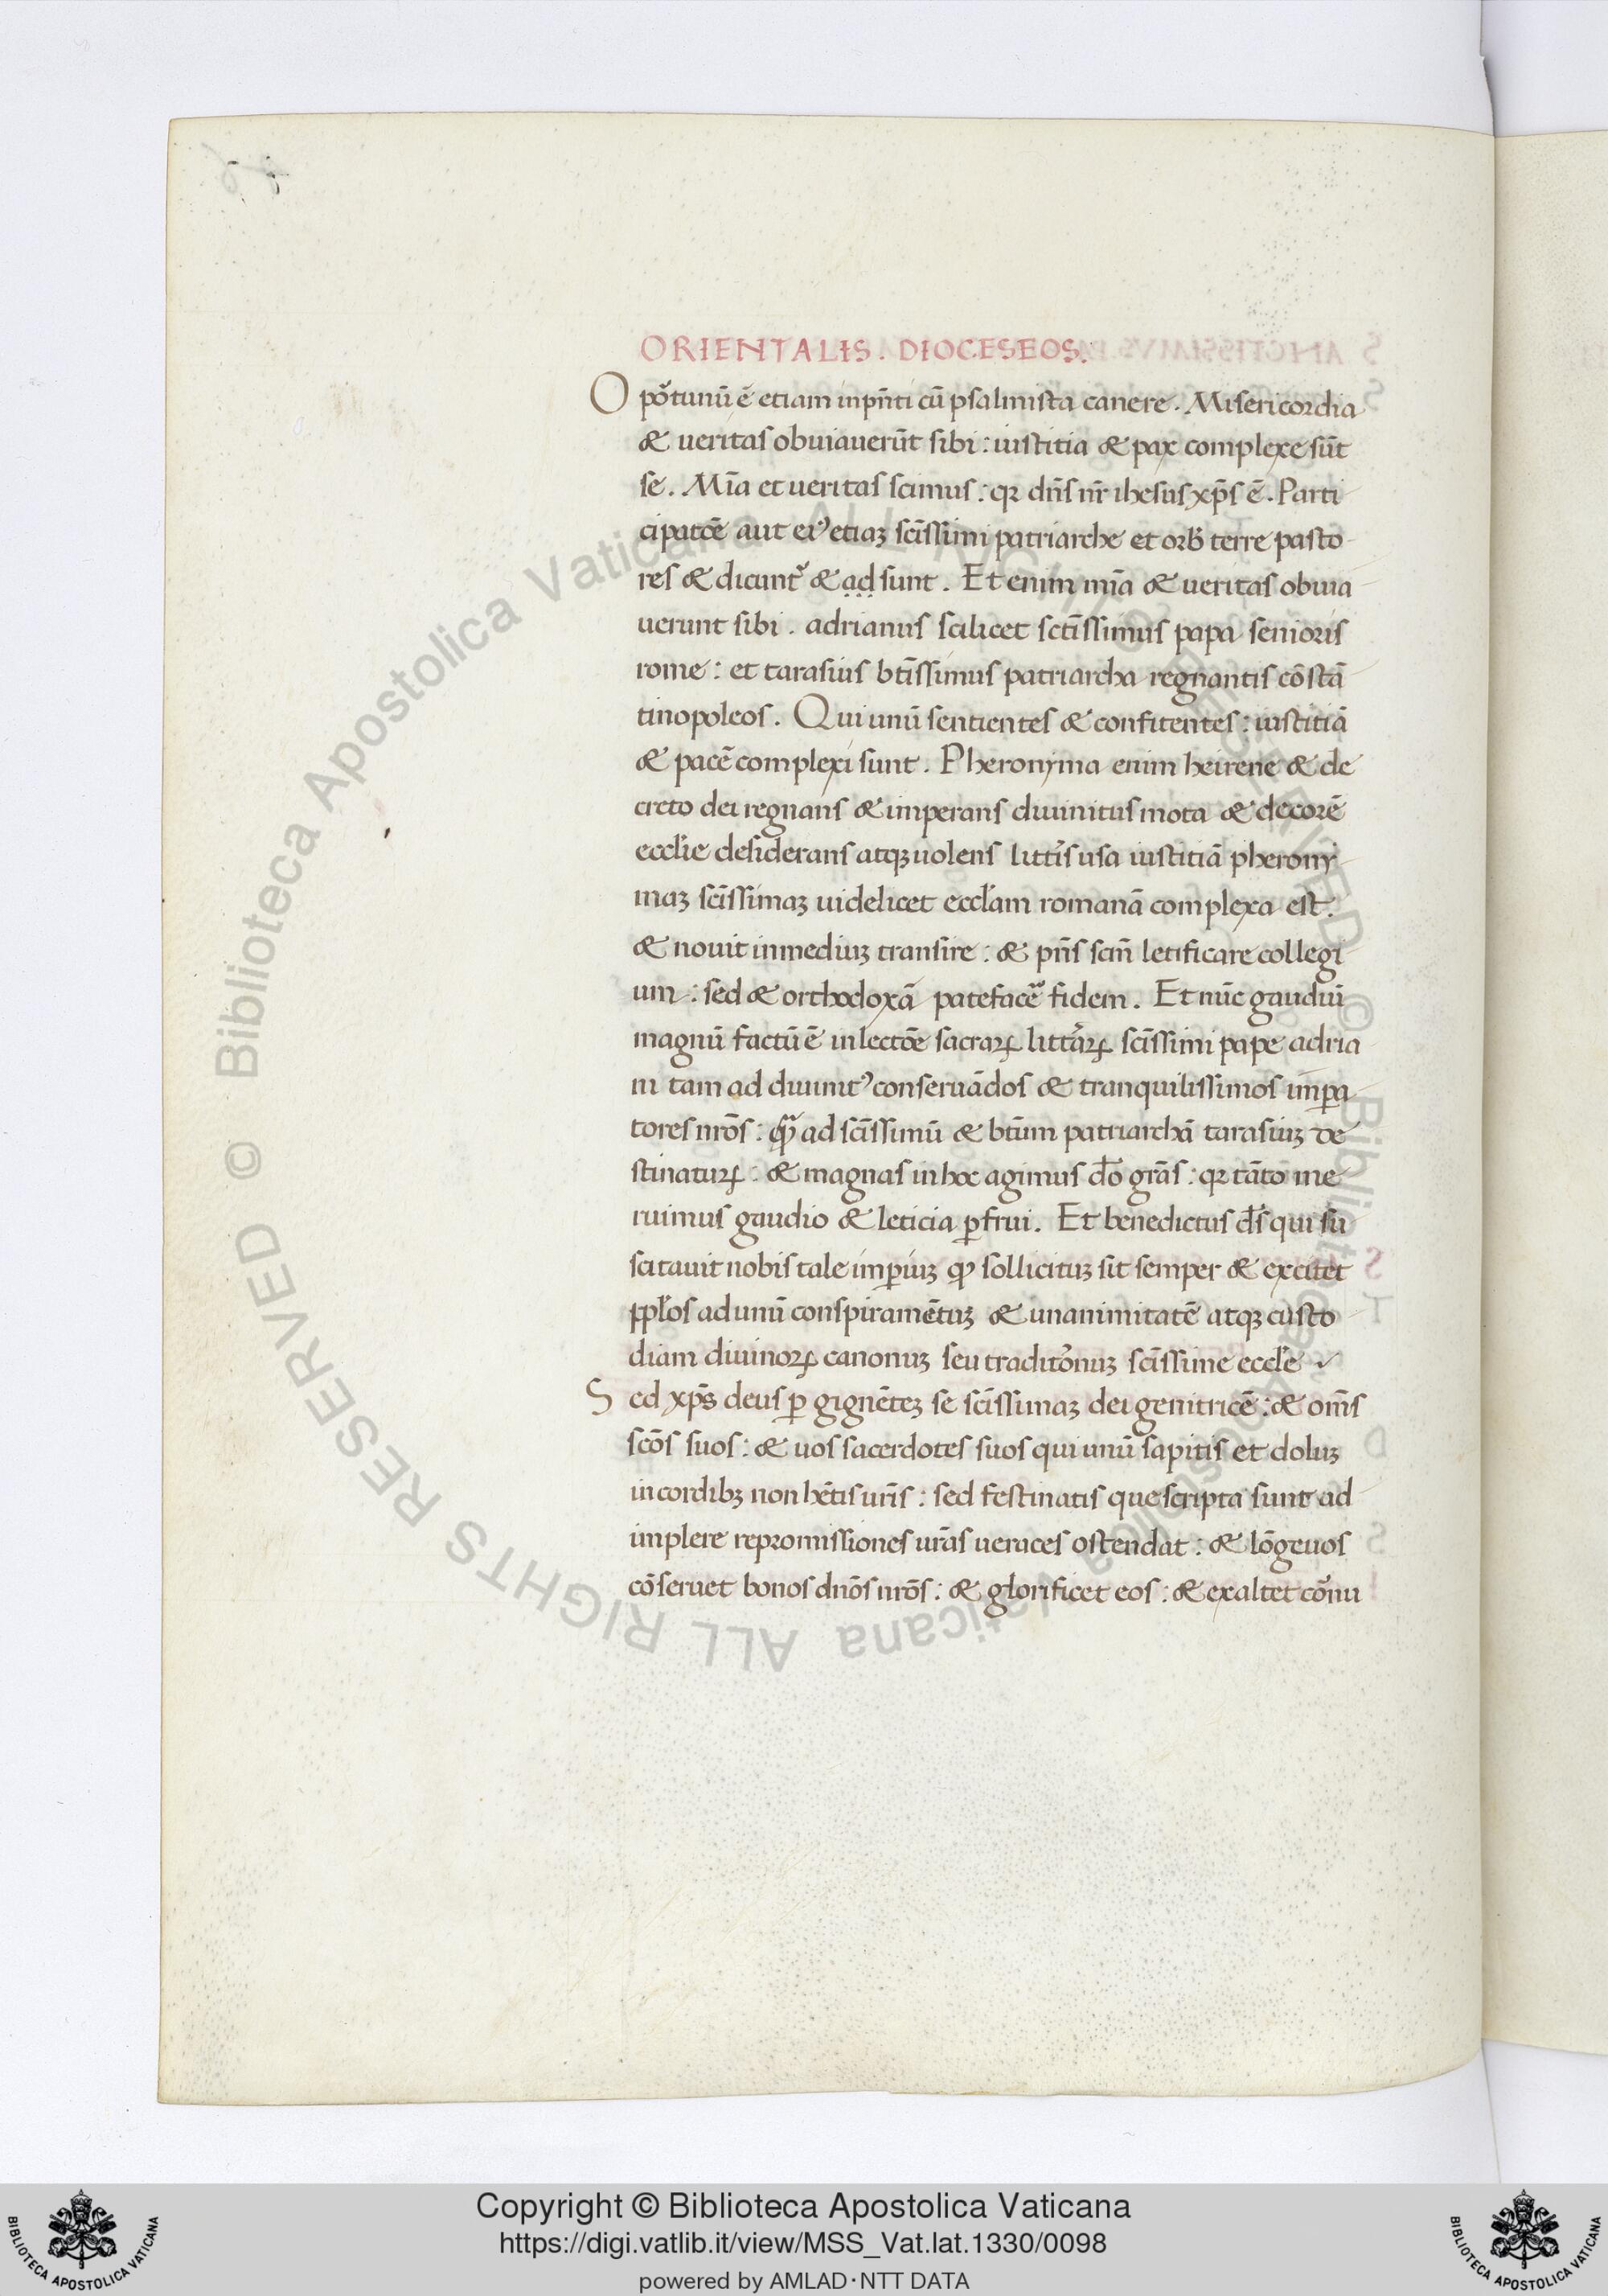 ORIENTALIS. DIOCESEOS.
Opo᷑tunū ē etiam inpn̄ti cū psalmista canere. Misericordia
& ueritas obuiauerūt sibi: iustitia & pax complexe sūt
se. Mīa et ueritas scimus: qꝛ dn̄s nr̄ ihesus xp̄s ē. Parti
cipatōe aut eiꝰ etiaꝫ scīssimi patriarche et orb̄ terre pasto
res & dicunt᷑ & ad sunt. Et enim mīa & ueritas obuia
uerunt sibi. adrianus scilicet sctīssimus papa senioris
rome: et tarasius btīssimus patriarcha regnantis cōstā
tinopoleos. Qui unū sentientes & confitentes: iustitiā
& pacē complexi sunt. Pheronyma enim heirene & de
creto dei regnans & imperans diuinitus mota & decorē
eccl̄ie desiderans atqꝫ uolens litt̄is usa iustitiā pherony
maꝫ scīssimaꝫ uidelicet eccl̄am romanā complexa est.
& nouit inmediuꝫ transire: & pn̄s scm̄ letificare collegi
um: sed & orthodoxā patefacē᷑ fidem. Et nūc gaudiū
magnū factū ē inlectōe sacraꝝ litt̄aꝝ scīssimi pape adria
ni tam ad diuinitꝰ conseruādos & tranquilissimos imꝑa
tores nr̄os: qᷓꝫ ad scīssimū & btūm patriarchā tarasiuꝫ de
stinatuꝝ: & magnas in hoc agimus d̄o gr̄as: qꝛ tāto me
ruimus gaudio & leticia ꝑfrui. Et benedictus d̄s qui su
scitauit nobis tale imꝑiuꝫ qđ sollicituꝫ sit semper & excitet
ppl̄os ad unū conspiramētuꝫ & unanimitatē atqꝫ custo
diam diuinoꝝ canonuꝫ seu traditōnuꝫ scīssime eccl̄e
Sed xp̄s deus ꝑ gignēteꝫ se scīssimaꝫ dei genitricē: & om̄s
scōs suos: & uos sacerdotes suos qui unū sapitis et doluꝫ
in cordibꝫ non hētis ur̄is: sed festinatis que scripta sunt ad
implere repromissiones ur̄as ueraces ostendat: & lōgeuos
cōseruet bonos dn̄os nr̄os: & glorificet eos: & exaltet co᷑nu
Copyright © Biblioteca Apostolica Vaticana
https://digi.vatlib.it/view/MSS_Vat.lat.1330/0098
powered by AMLAD·NTT DATA
© Biblioteca Apostolica Vaticana ALL RIGHTS RESERVED
© Biblioteca Apostolica Vaticana ALL RIGHTS RESERVED
BIBLIOTECA APOSTOLICA VATICANA
BIBLIOTECA APOSTOLICA VATICANA